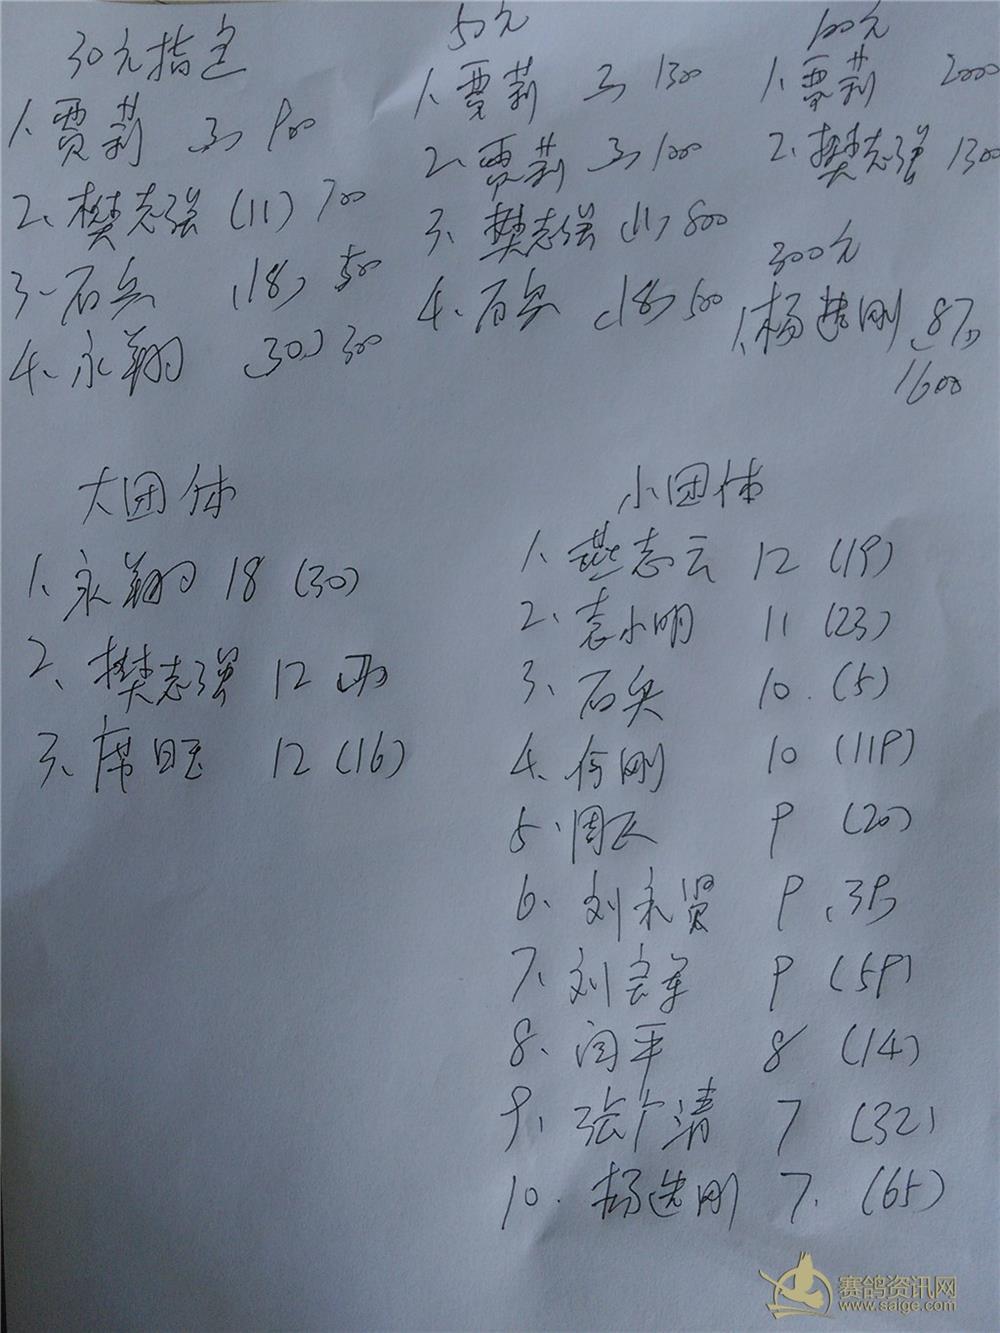 30元指定
1、贾莉 900
2、樊志强 (11) 700
3、石兵 (18) 500
4、永翔 (30) 300
50元
1、贾莉 1300
2、贾莉 1000
3、樊志强 (11) 800
4、石兵 (18) 500
100元
1、贾莉 2000
2、樊志强 1300
300元
1、杨建刚 (87)
1600
大团体
1、永翔 18 (30)
2、樊志强 12
3、席旺 12 (16)
小团体
1、燕志云 12 (19)
2、袁小明 11 (23)
3、石兵 10 (5)
4、刚 10 (119)
5、周 9 (20)
6、刘永贤 9 (39)
7、刘军 9 (59)
8、闫平 8 (14)
9、张广清 7 (32)
10. 杨建刚 7. (65)
赛鸽资讯网
www.saige.com